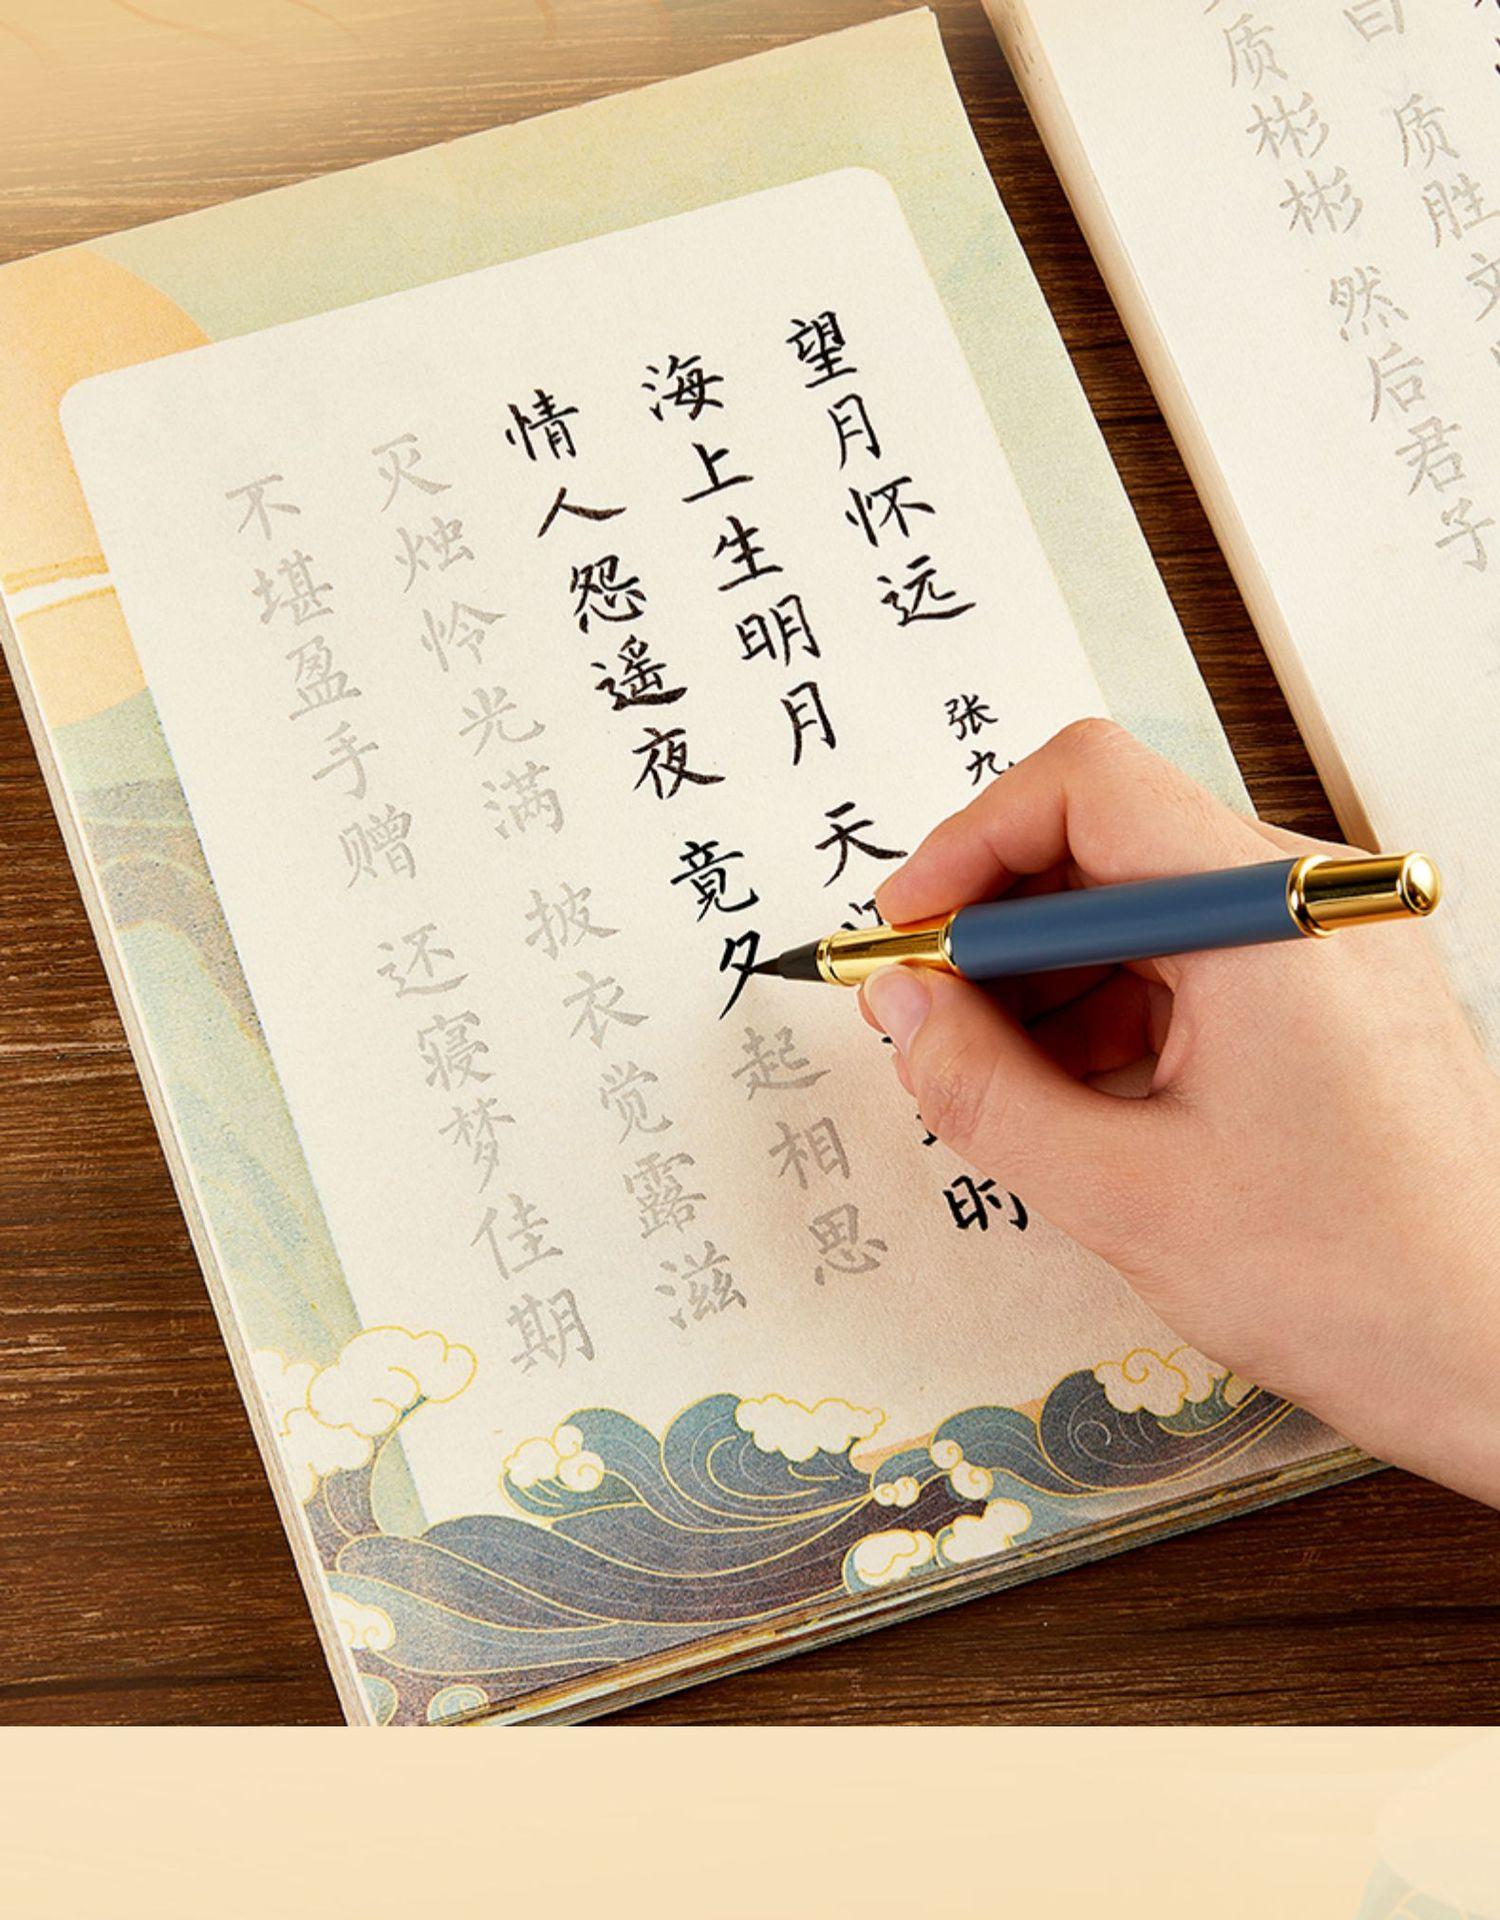 曰 质胜文
质彬彬 然后君子
望月怀远 张九
海上生明月 天 时
情人怨遥夜 竟夕起相思
灭烛怜光满 披衣觉露滋
不堪盈手赠 还寝梦佳期